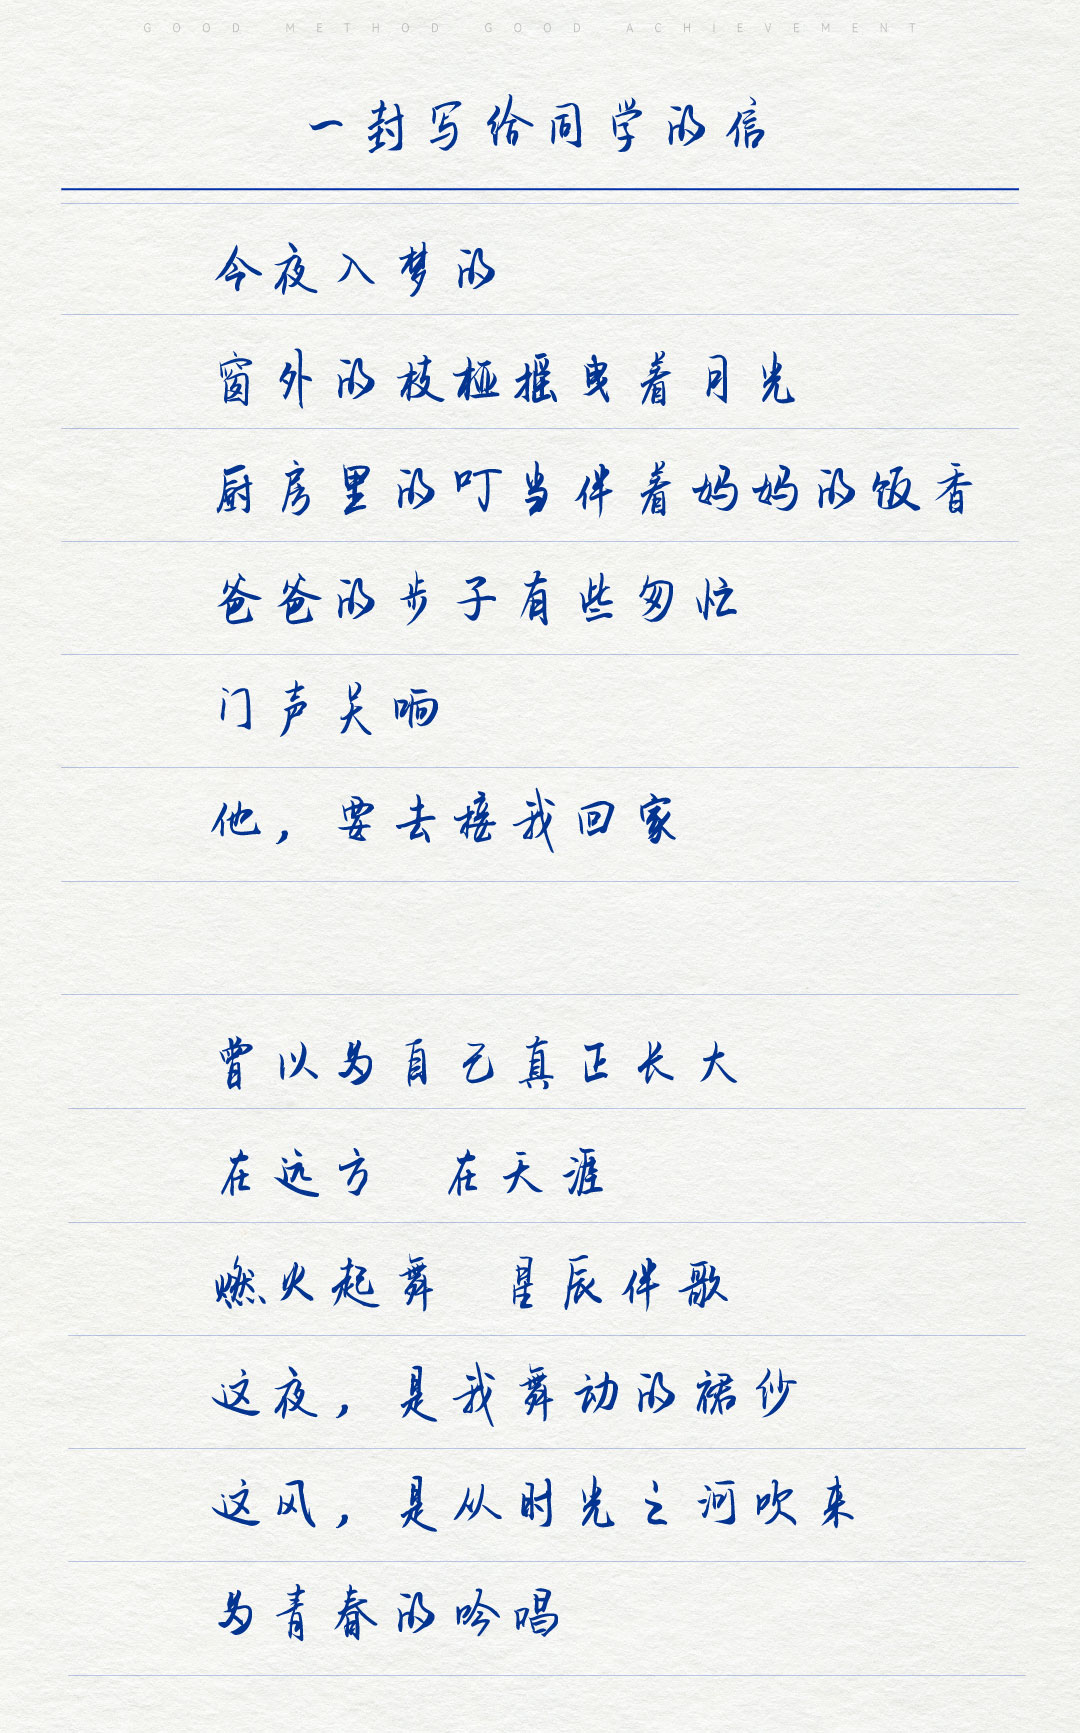 GOOD METHOD GOOD ACHIEVEMENT
一封写给同学的信
今夜入梦的
窗外的枝桠摇曳着月光
厨房里的叮当伴着妈妈的饭香
爸爸的步子有些匆忙
门声关响
他，要去接我回家
曾以为自己真正长大
在远方 在天涯
燃火起舞 星辰伴歌
这夜，是我舞动的裙纱
这风，是从时光之河吹来
为青春的吟唱